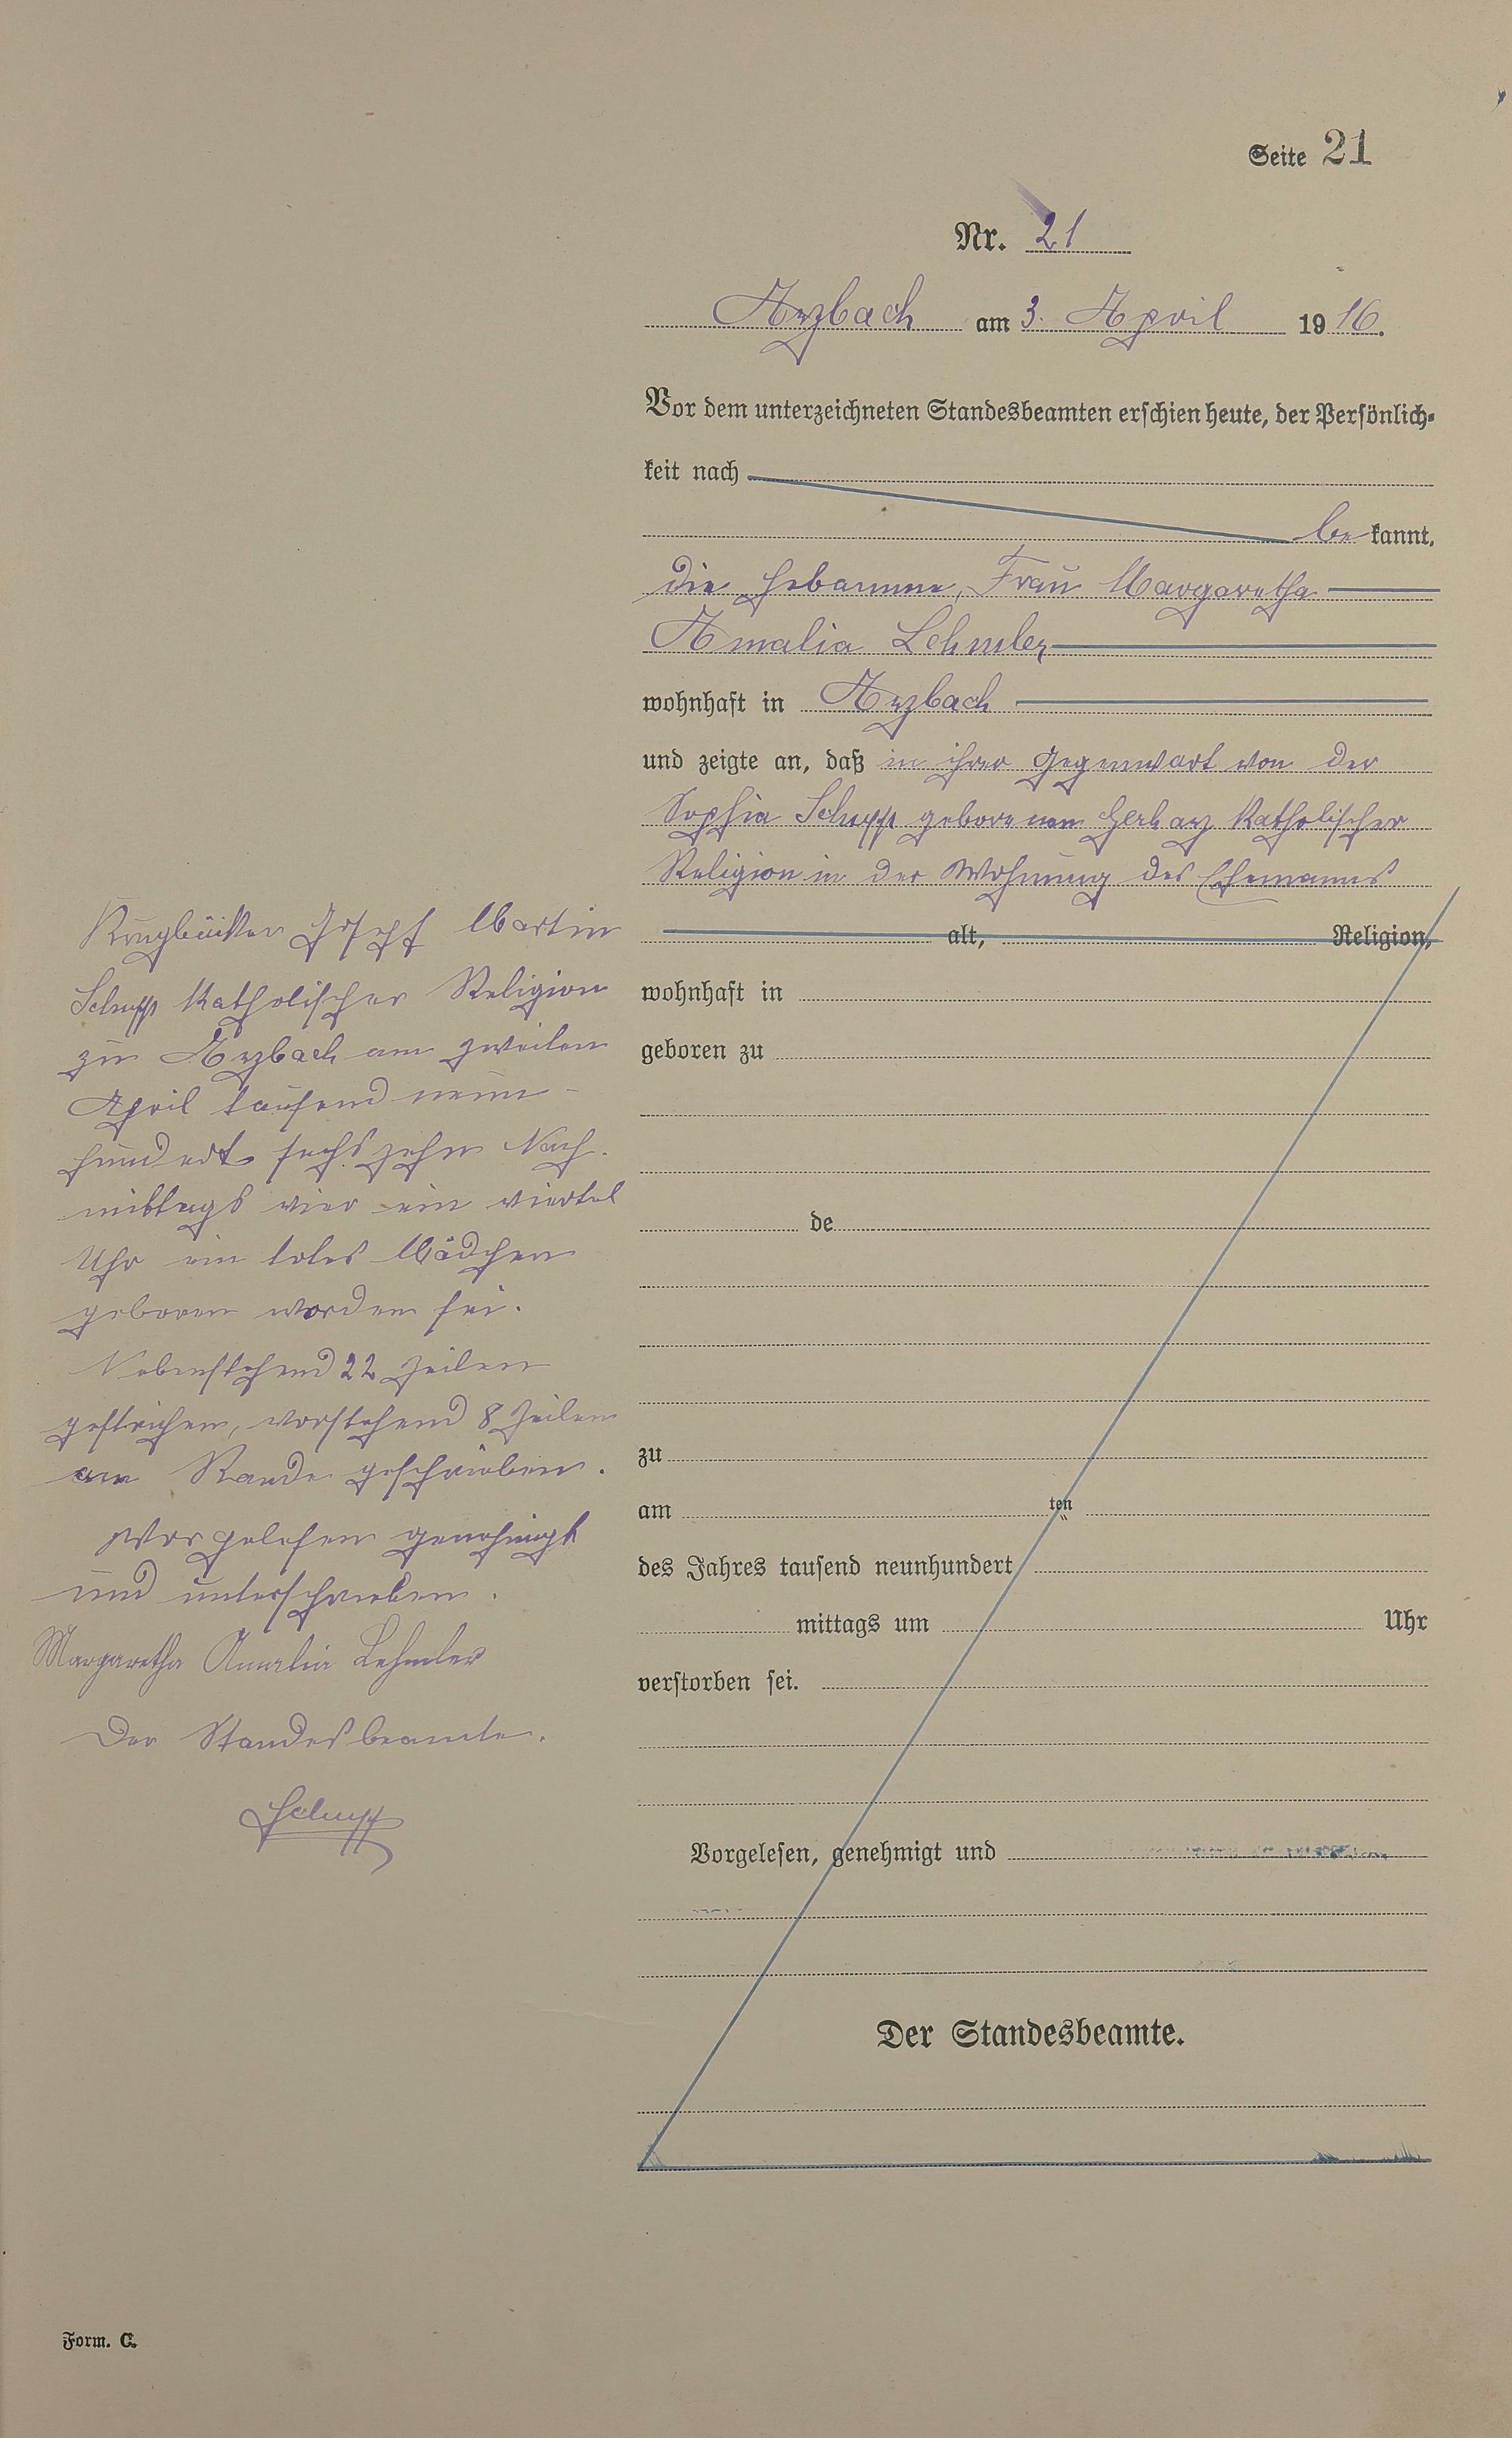 Seite 21
Nr. 21
Arzbach am 3. April 1916.
Vor dem unterzeichneten Standesbeamten erschien heute, der Persönlich-
keit nach
be kannt,
die Hebamme, Frau Margaretha
Amalia Lehmler
wohnhaft in Arzbach
und zeigte an, daß in ihrer Gegenwart von der
Sophia Schupp geborenen katholischer
Religion in der Wohnung des Ehemanns
Krugbäcker Josef Martin
Schupp katholischer Religion
zu Arzbach am zweiten
April tausend neun-
hundert sechszehn Nach-
mittags vier ein viertel
Uhr ein totes Mädchen
geboren worden sei.
Nebenstehend 22 Zeilen
gestrichen, vorstehend 8 Zeilen
am Rande geschrieben.
Vorgelesen genehmigt
und unterschrieben.
Margaretha Amalia Lehmler
Der Standesbeamte.
Schupp
alt, Religion,
wohnhaft in
geboren zu
de
zu
am ten
des Jahres tausend neunhundert
mittags um Uhr
verstorben sei.
Vorgelesen, genehmigt und
Der Standesbeamte.
Form. C.